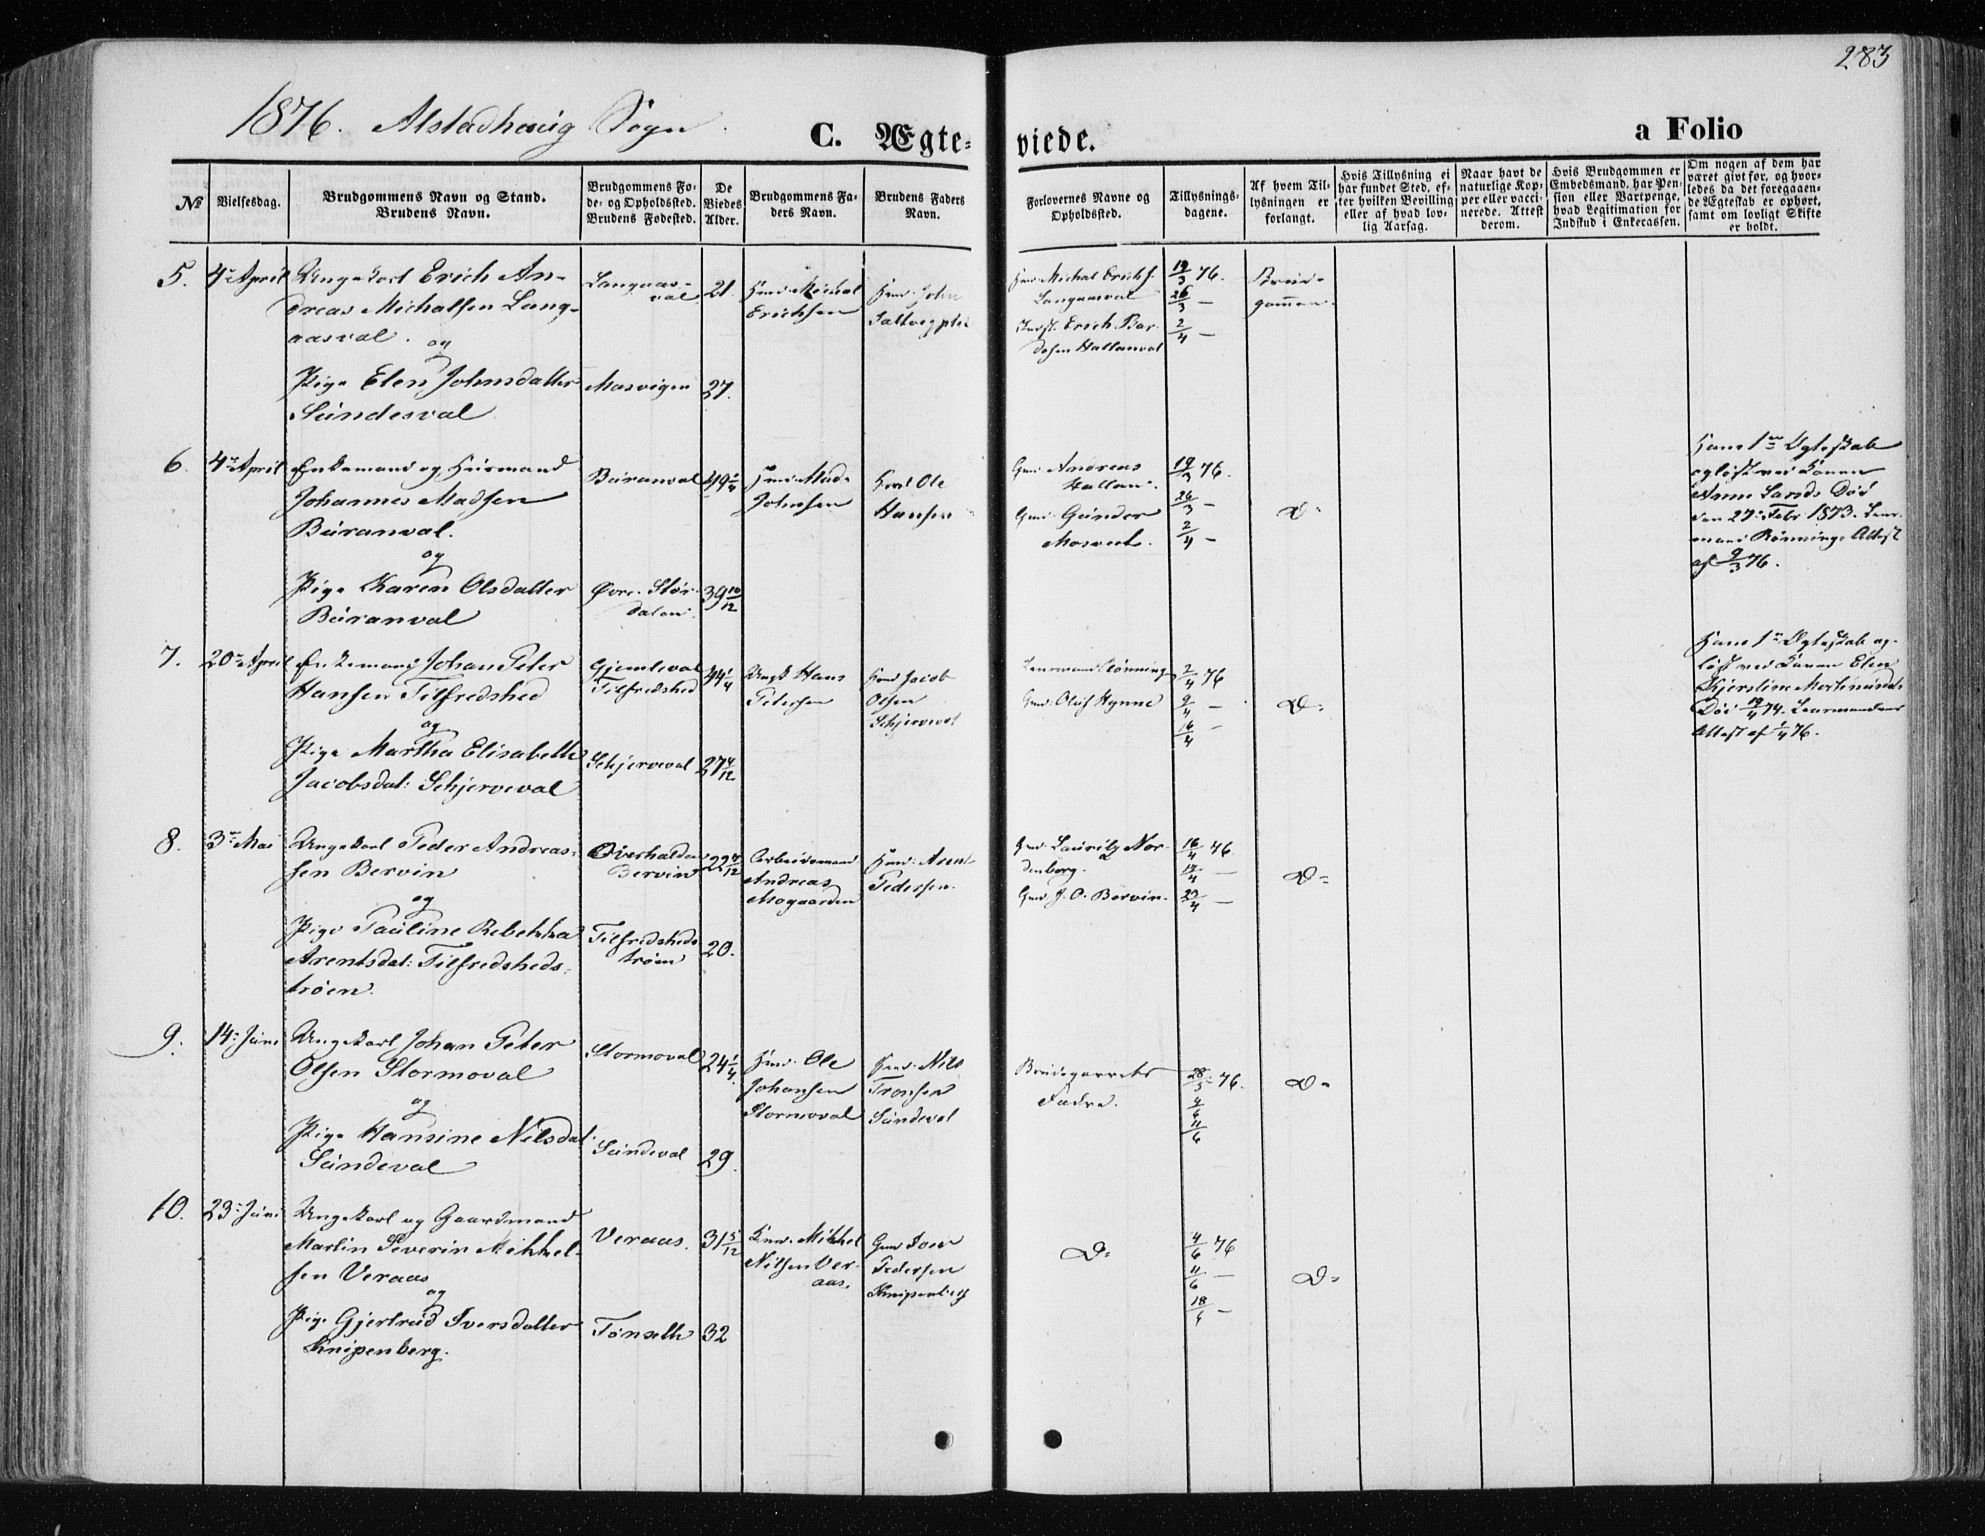 283
1876. Alstadhaug Sogn.
C. Ægte-
viede.
a Folio
No
Vielsesdag.
Brudgommens Navn og Stand.
Brudens Navn.
Brudgommens Fø-
de- og Opholdssted.
Brudens Fødested.
De
Viedes
Alder.
Brudgommens Fa-
ders Navn.
Brudens Faders
Navn.
Forlovernes Navne og
Opholdssted.
Tillysnings-
dagene.
Af hvem Til-
lysningen er
forlangt.
Hvis Tillysning ei
har fundet Sted, ef-
ter hvilken Bevilling
eller af hvad lov-
lig Aarsag.
Naar havt de
naturlige Kop-
per eller vacci-
nerede. Attest
derom.
Hvis Brudgommen er
Embedsmand, har Pen-
sion eller Vartpenge,
hvad Legitimation for
Indskud i Enkecassen.
Om nogen af dem har
været gift før, og hvor-
ledes da det foregaaen-
de Ægteskab er ophørt,
samt om lovligt Skifte
er holdt.
5.
4de April
Ungekarl Erich An-
dreas Michalsen Lang-
aasval.
og
Pige Elen Johnsdatter
Sundesval
Langaas-
val
Masvigen
21
27.
Huusm. Michal
Erichsen
Huusm. John
Saltvigplds
Huusm. Michal Erichs.
Langaasval
Indst. Erich Bar-
dosen Hallanval
19/3 76.
26/3 —
2/4 —
Brud-
gommen
6.
4de April
Enkemand og Huusmand
Johannes Madsen
Buranval.
og
Pige Karen Olsdatter
Buranval
Buranval
Øvre Stør-
dalen.
49 1/4
39 10/12
Huusm. Mads
Johnsen
Huusm. Ole
Hansen
Gmd. Andreas
Hallan.
Gmd. Gunder
Mosvet.
19/3 76.
26/3 —
2/4 —
Do
Hans 1ste Ægteskab
opløst ved Konen
Anne Lards Død
den 27. Febr 1873. Lens-
mand Rønnings Attest
af 9/3 76.
7.
20de April
Enkemand Johan Peter
Hansen Tilfredshed
og
Pige Martha Elisabeth
Jacobsdat: Schjerveval
Gjemleval
Tilfredshed
Schjerveval
44 1/4
27 4/12
Ungk. Hans
Petersen
Huusm. Jacob
Olsen
Schjerveval
Lensmand Rønning
Gmd. Oluf Hynne
2/4 76
9/4 —
16/4
Do
Hans 1ste Ægteskab op-
løst ved Konen Elen
Kjerstine Mortinusd.
Død 19/4 74. Lensmandens
Attest af 1/4 76.
8.
3de Mai
Ungekarl Peder Andreas-
sen Bervin
og
Pige Pauline Rebekka
Arentsdat: Tilfredsheds-
trøen.
Overhalden
Bervin
Tilfredsheds
trøen
22 7/12
20.
Arbeidsmand
Andreas
Mogaarden
Huusm. Arent
Pedersen.
Gmd. Lauritz Nor-
denborg.
Gmd. J. O. Bervin.
16/4 76
17/4 —
23/4 —
Do
9.
14de Juni
Ungekarl Johan Peter
Olsen Stormoval
og
Pige Hansine Nilsdat:
Sundeval
Stormoval
Sundeval
24 1/4
29.
Huusm. Ole
Johansen
Stormoval
Huusm. Nils
Tronsen
Sundeval
Brudeparrets
Fædre.
28/5 76.
4/6
11/6
Do
10.
23de Juni
Ungekarl og Gaardmand
Martin Severin Mikkel-
sen Veraas
og
Pige Gjertrud Iversdatter
Knipenberg.
Veraas.
Tønseth
31 5/12
32
Gmd. Mikkel
Nilsen Ver-
aas.
Gmd Iver
Pedersen
Knipenberg
Do
4/6 76
11/6 —
18/6 —
Do